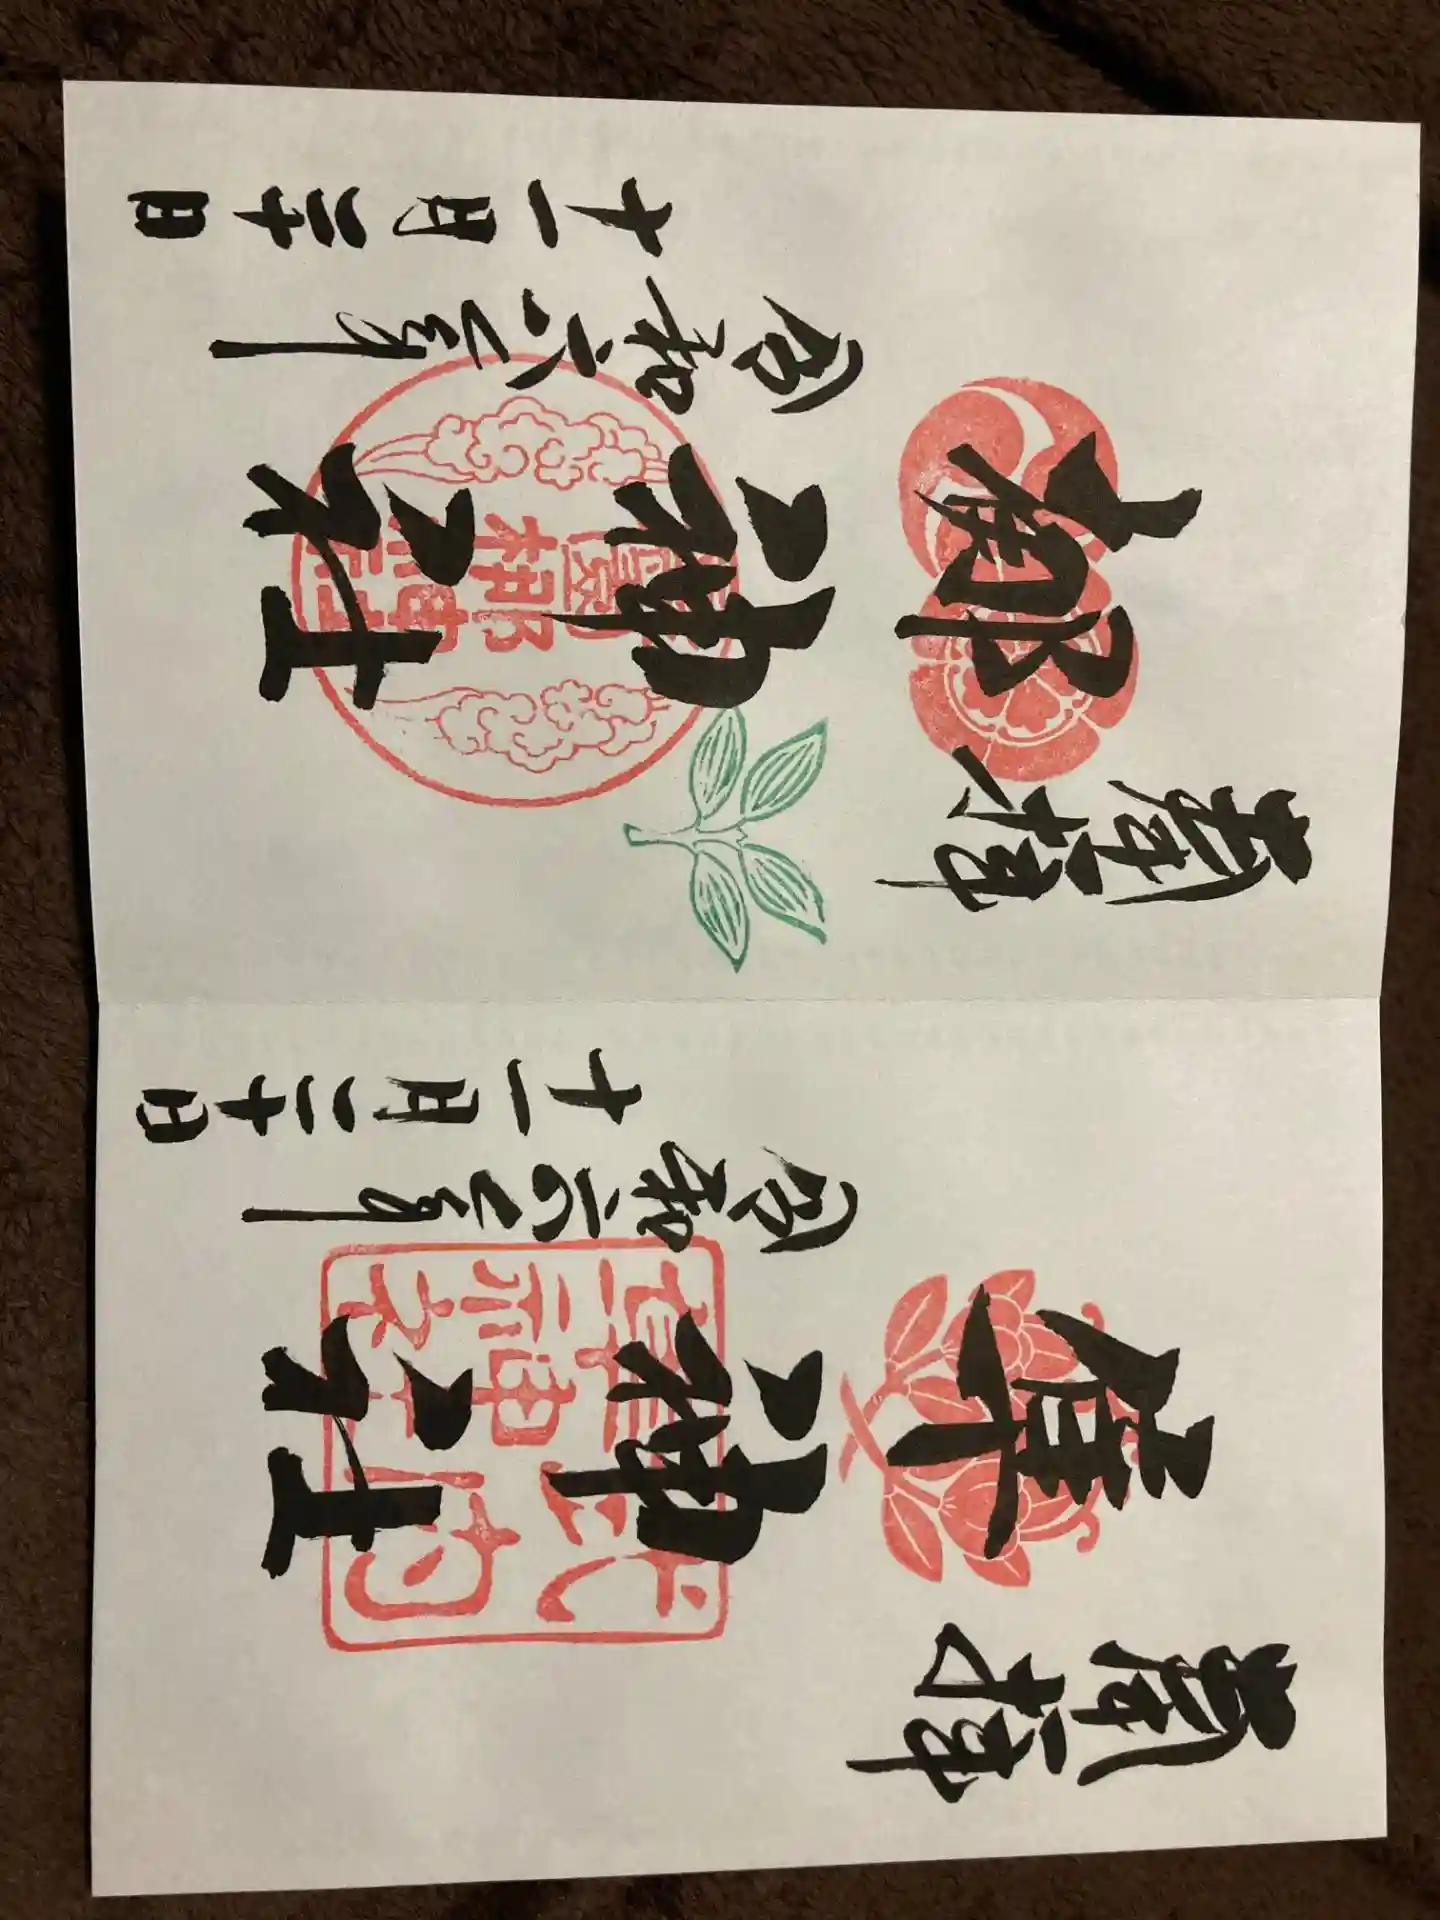 奉拝
隼神社
令和六年
十一月二十日
式之内
隼神社
奉拝
梛神社
令和六年
十一月二十日
梛
神社